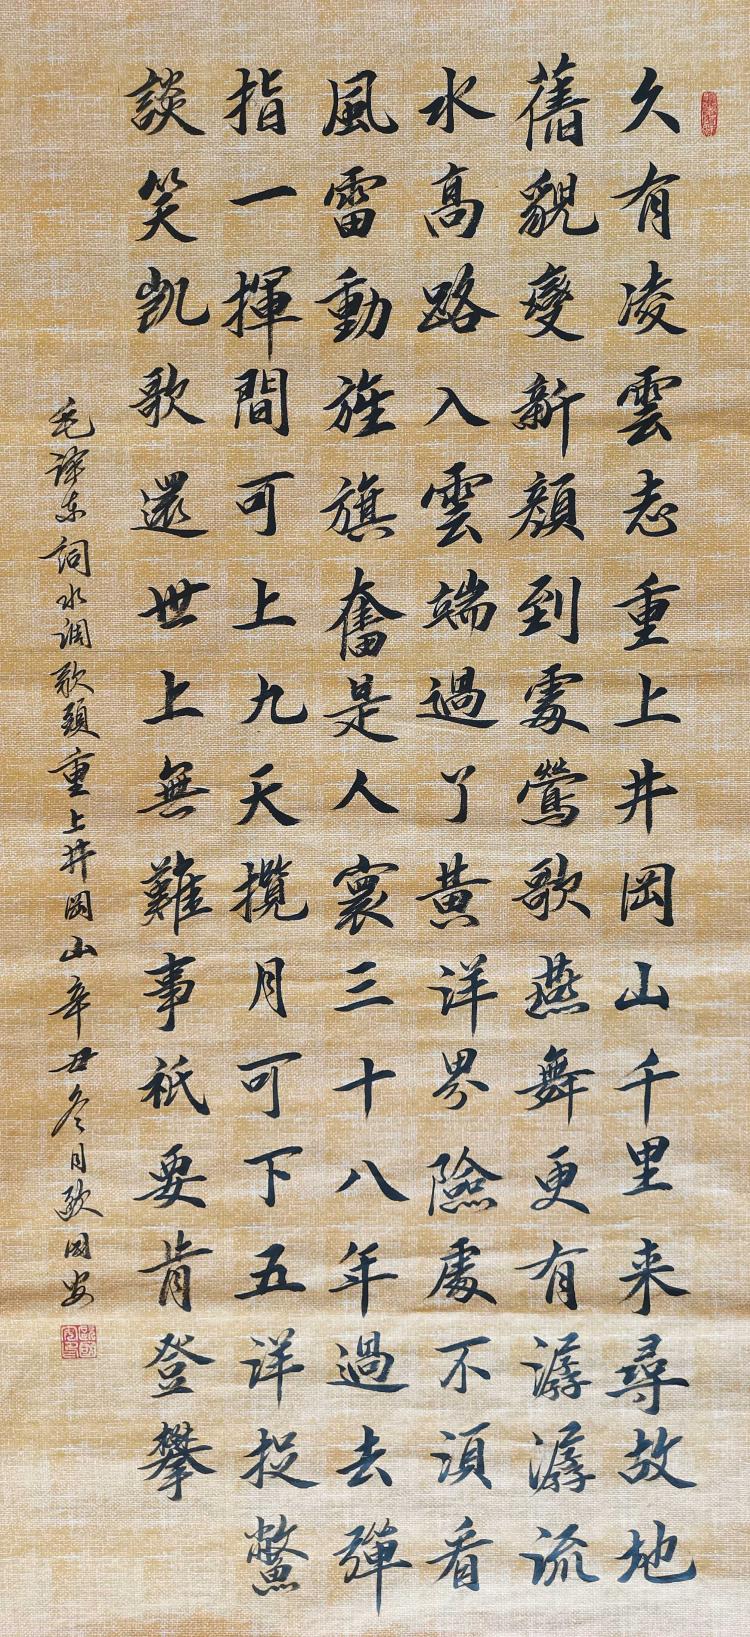 久有凌雲志重上井岡山千里来尋故地
舊貌變新顔到處鶯歌燕舞更有潺潺流
水高路入雲端過了黃洋界險處不須看
風雷動旌旗奮是人寰三十八年過去彈
指一揮間可上九天攬月可下五洋捉鱉
談笑凱歌還世上無難事衹要肯登攀
毛泽东詞水调歌頭重上井岡山辛丑冬月歐國安